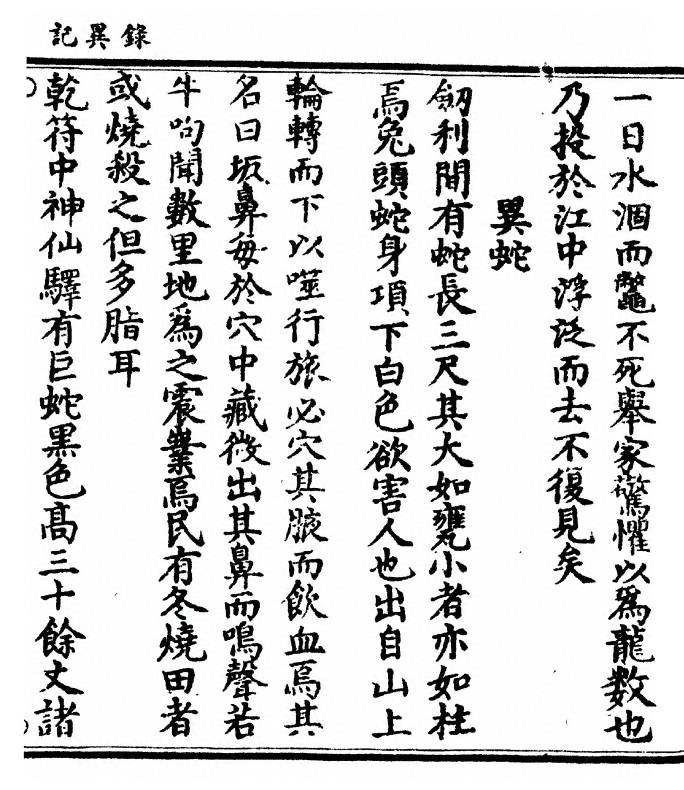 錄異記
一日水涸而鼈不死舉家驚懼以爲龍數也
乃投於江中浮泛而去不復見矣
異蛇
劒利間有蛇長三尺其大如甕小者亦如柱
焉兔頭蛇身項下白色欲害人也出自山上
輪轉而下以噬行旅必穴其腋而飲血焉其
名曰坂鼻每於穴中藏微出其鼻而鳴聲若
牛呴聞數里地爲之震焉民有冬燒田者
或燒殺之但多脂耳
乾符中神仙驛有巨蛇黑色高三十餘丈諸